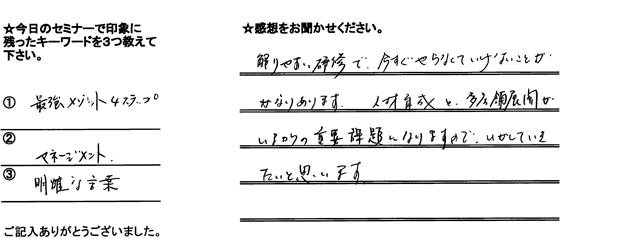 ★今日のセミナーで印象に
残ったキーワードを3つ教えて
下さい。
① 最強メソット4ステップ
②
マネージメント.
③ 明確な言葉
ご記入ありがとうございました。
★感想をお聞かせください。
解りやすい研修で、今すぐやらなくていけないことが
かなりあります。 人材育成と、多店舗展開が
いまからの重要課題になりますので、いかしていき
たいと思います